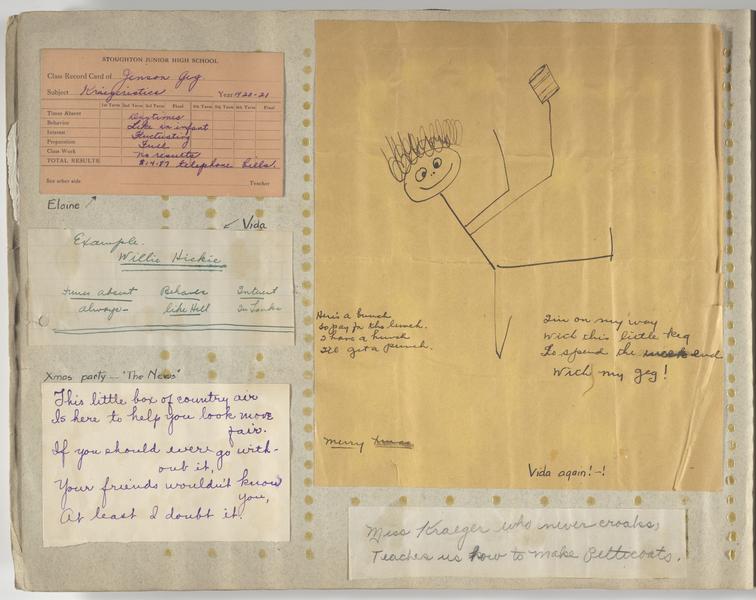 STOUGHTON JUNIOR HIGH SCHOOL
Class Record Card of Jenson Geg
Subject Kraegeristics Year 1920-21
1st Term 2nd Term 3rd Term Final 4th Term 5th Term 6th Term Final
Times Absent Daytimes
Behavior Like an infant
Interest Fluctuating
Preparation Full
Class Work No results
TOTAL RESULTS $14.87 telephone bills.
See other side Teacher
Elaine
Vida
Example.
Willie Hickie
times absent Behaves Interest
always- like Hell In
Xmas party - "The News"
This little box of country air
Is here to help you look more
fair.
If you should ever go with-
out it,
Your friends wouldn't know
you,
At least I doubt it.
Here's a bunch
So pay for the lunch.
I have a hunch
I'll get a punch.
I'm on my way
With this little keg
To spend the week end
With my geg!
Merry Xmas
Vida again!-!
Miss Kraeger who never croaks,
Teaches us how to make Petticoats.